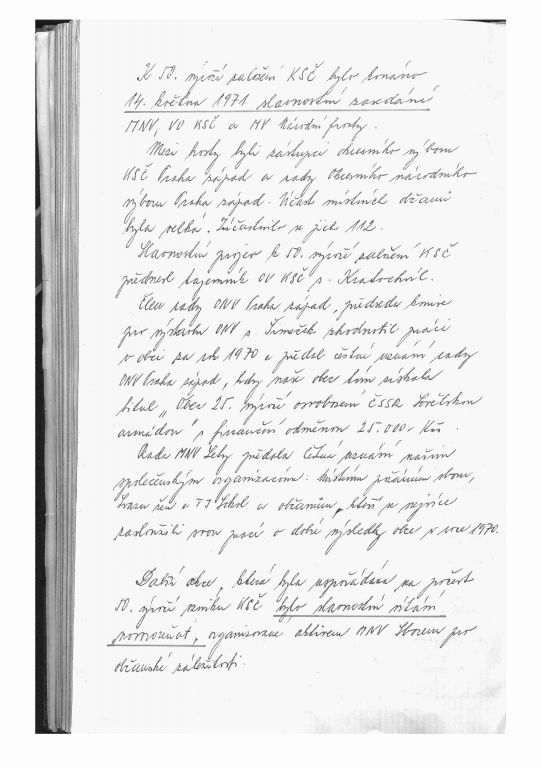 K 50. výročí založení KSČ bylo konáno
14. května 1971 slavnostní zasedání
MNV, VO KSČ a MV Národní fronty.
Mezi hosty byli zástupci okresního výboru
KSČ Praha západ a rady Okresního národního
výboru Praha západ. Účast místních občanů
byla velká. Zúčastnilo se jich 112.
Slavnostní projev k 50. výročí založení KSČ
přednesl tajemník OV KSČ s. Kratochvíl.
Člen rady ONV Praha západ, předseda komise
pro výstavbu ONV s. Šimeček zhodnotil práci
v obci za rok 1970 a předal čestné uznání rady
ONV Praha západ, kdy naše obec tím získala
titul "Obec 25. výročí osvobození ČSSR Sovětskou
armádou" s finanční odměnou 25.000,- Kčs.
Rada MNV Lety předala čestná uznání našim
společenským organizacím: Místnímu požárnímu sboru,
Svazu žen a TJ Sokol a občanům, kteří se nejvíce
zasloužili svou prací o dobré výsledky obce v roce 1970.
Další akce, která byla uspořádána na počest
50. výročí vzniku KSČ bylo slavnostní vítání
"novorozeňat", organizované aktivem MNV Sborem pro
občanské záležitosti.